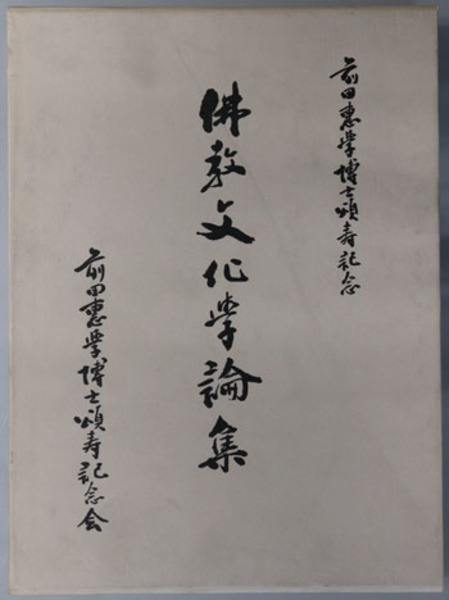 前田惠学博士頌寿記念
佛教文化學論集
前田惠学博士頌寿記念会